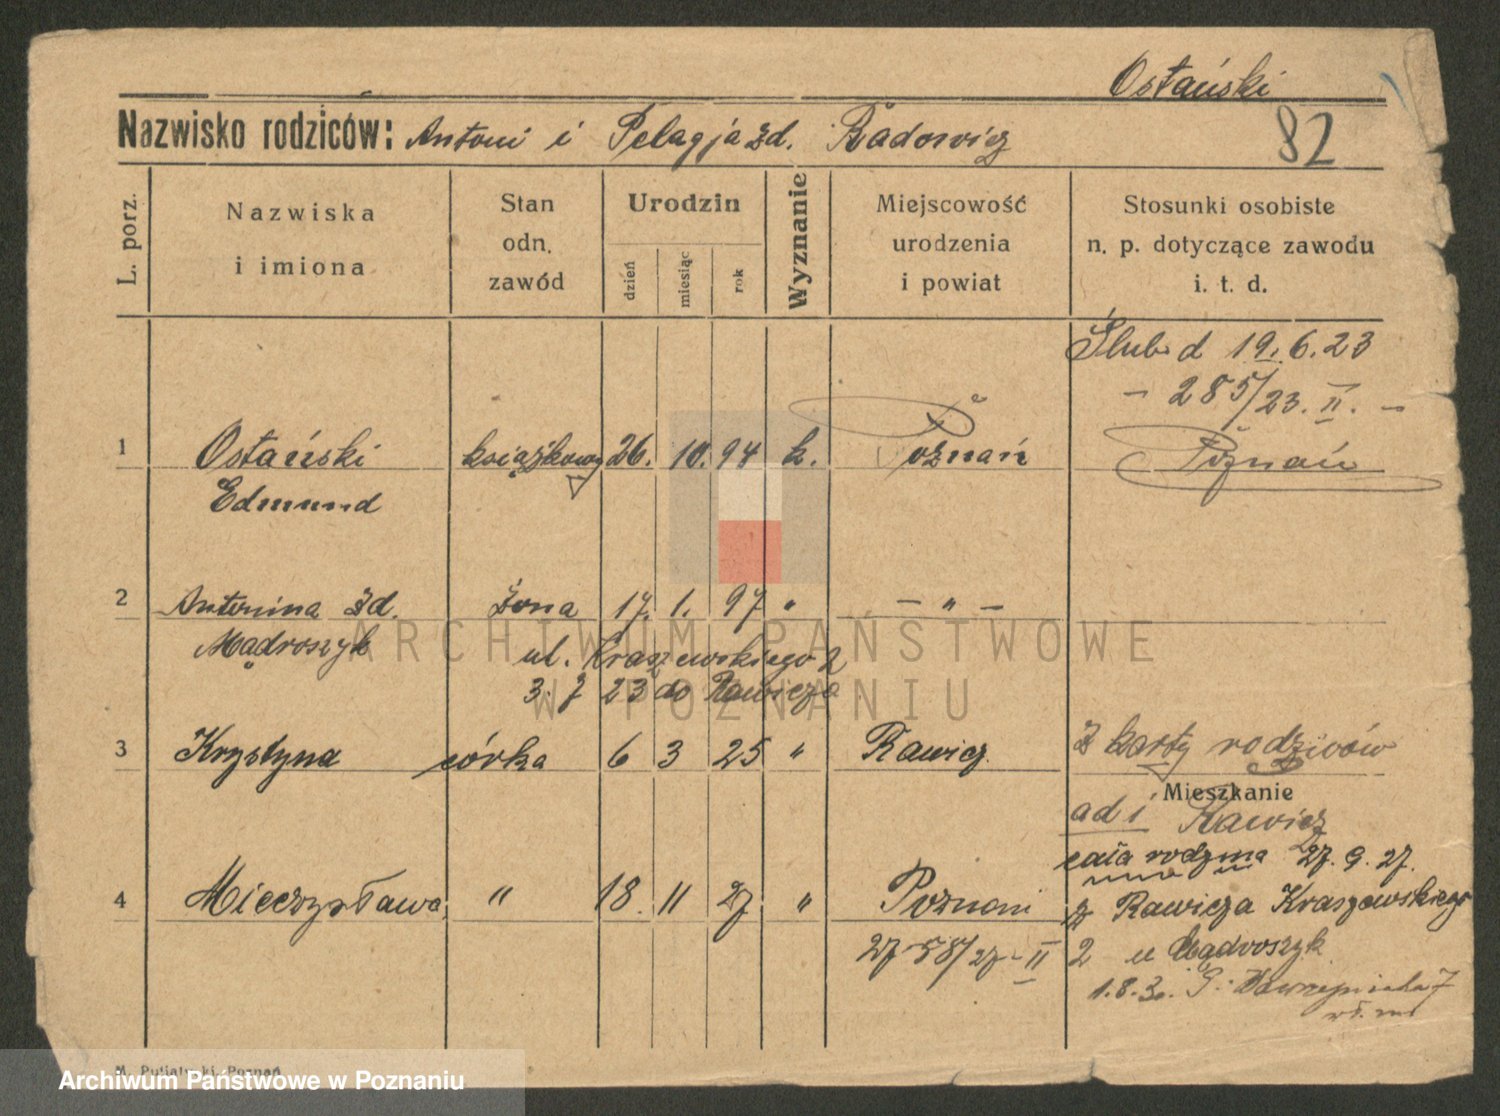 Ostański
Nazwisko rodziców: Antoni i Pelagja zd. Radowicz
82
L. porz.
Nazwiska i imiona
Stan odn. zawód
Urodzin
dzień miesiąc rok
Wyznanie
Miejscowość urodzenia i powiat
Stosunki osobiste n. p. dotyczące zawodu i. t. d.
Ślub d 19.6.23
- 285/23. II. -
1 Ostański książkowy 26. 10. 94 k. Poznań Poznań
Edmund
2 Antonina zd. żona 17. 1. 97 " - " -
Mądroszyk ul. Kraszewskiego 2
3. 7 23 do Rawicza
3 Krystyna córka 6 3 25 " Rawicz Z karty rodziców
Mieszkanie
ad i Rawicz
cała rodzina 27. 9. 27.
4 Mieczysława " 18. 11 27 " Poznań z Rawicza Kraszewskiego
2758/27-II 2 u Mądroszyk
1.8.30. G:
ARCHIWUM PAŃSTWOWE
W POZNANIU
Poznań
Archiwum Państwowe w Poznaniu